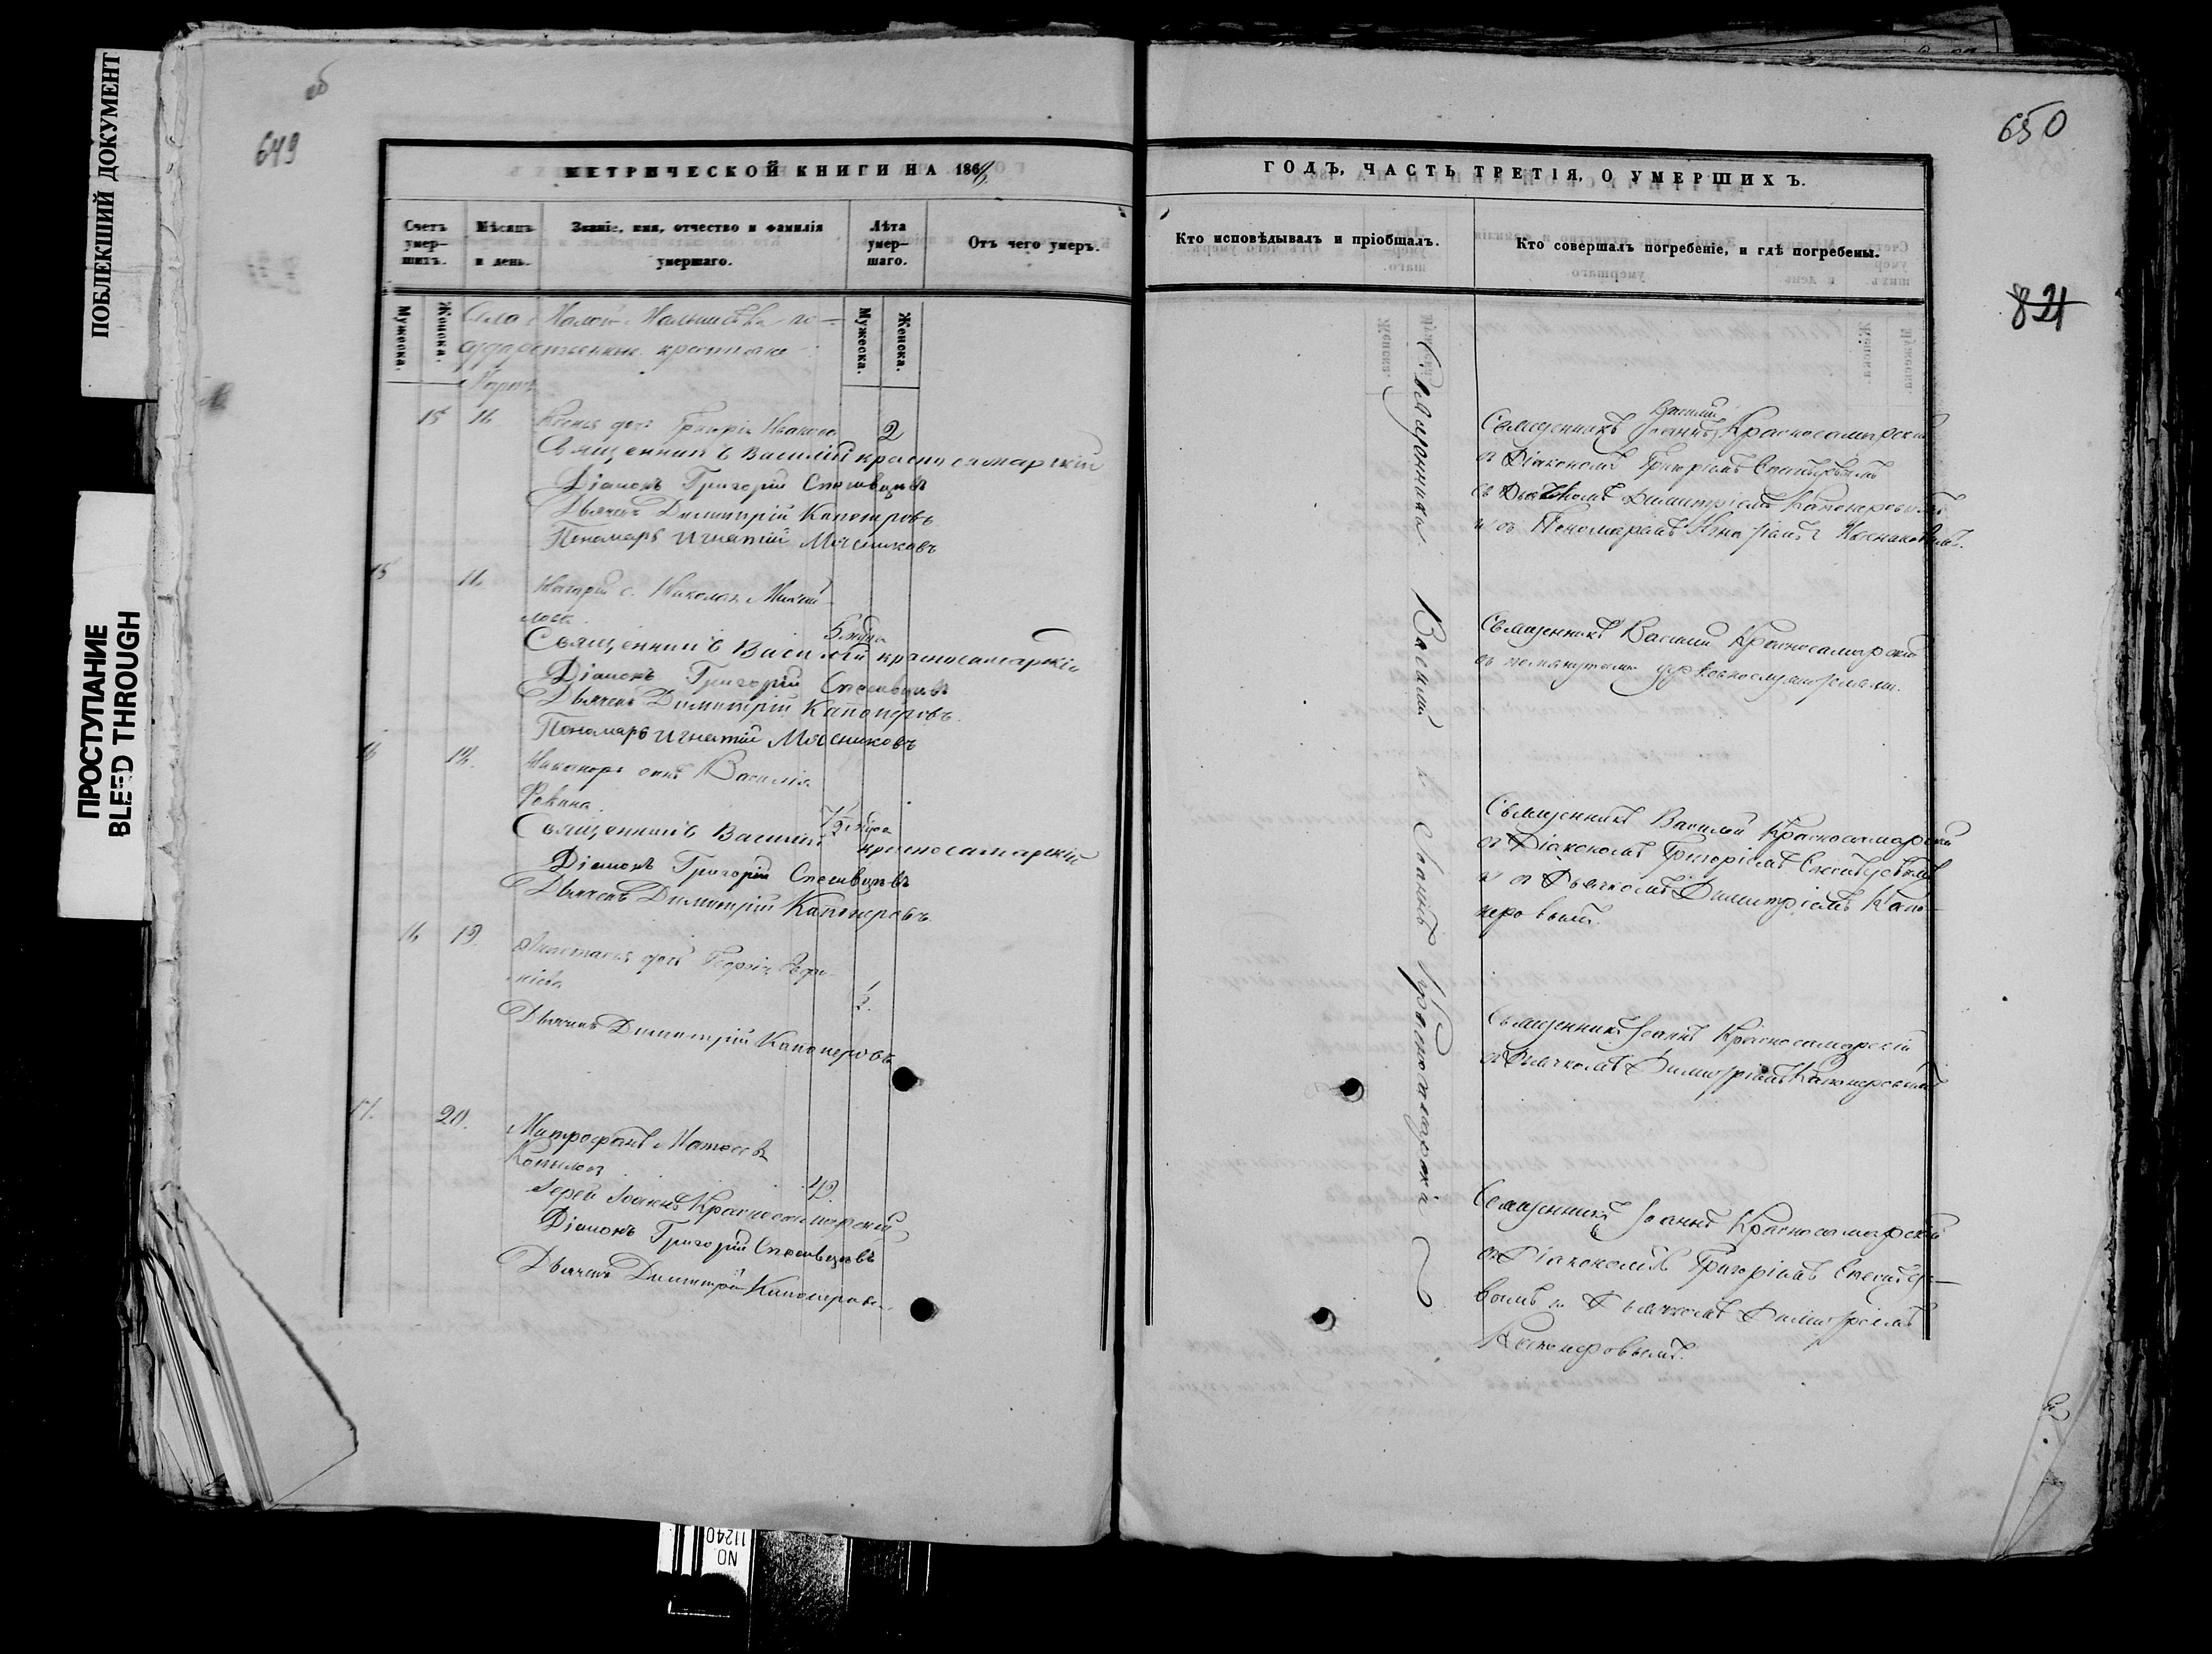 ПОБЛЕКШИЙ ДОКУМЕНТ
ПРОСТУПАНИЕ
BLEED THROUGH
об
649
МЕТРИЧЕСКОЙ КНИГИ НА 1869
Счетъ умер-шихъ.
Мѣсяцъ и день.
Званіе, имя, отчество и фамилія умершаго.
Лѣта умер-шаго.
Отъ чего умеръ.
Мужеска.
Женска.
Мужеска.
Женска.
Села Малой Малышевки го-
сударственные крестьяне
Мартъ
15 11. Ксенья дочь Григорія Иванова 2
Священникъ Василій Красносамарскій
Діаконъ Григорій Спешневъ
Дьячекъ Димитрій Капонеровъ
Пономарь Игнатій Мясниковъ
15 11. Назарій с. Николая Михай-
лова 5 мѣся
Священникъ Василій Красносамарскій
Діаконъ Григорій
Дьячекъ Димитрій Капонеровъ.
Пономарь Игнатій Мясниковъ
16 Никаноръ сынъ Василія
Фокина.
Священникъ Василій Красносамарскій
Діаконъ Григорій
Дьячекъ Димитрій Капонеровъ
16 19. Анастасья дочь
Дьячекъ Димитрій Капонеровъ
17. 20. Митрофанъ Матвеевъ
Копылов 42.
Іерей Іоаннъ Красносамарскій
Діаконъ Григорій
Дьячекъ Димитрій Капонеровъ.
650
821
ГОДЪ, ЧАСТЬ ТРЕТІЯ, О УМЕРШИХЪ.
Кто исповѣдывалъ и пріобщалъ.
Кто совершалъ погребеніе, и гдѣ погребены.
Священники: Василій и Іоаннъ Красносамарскіе
Василій
Священникъ Іоаннъ Красносамарскій
съ Діакономъ Григоріемъ
съ Дьячкомъ Димитріемъ Капонеровымъ
и съ Пономаремъ Игнатіемъ Мясниковымъ.
Священникъ Василій Красносамарскій
съ помянутыми церковнослужителями.
Священникъ Василій Красносамарскій
съ Діакономъ Григоріемъ
и съ Дьячкомъ Димитріемъ Капо-
неровымъ.
Священникъ Іоаннъ Красносамарскій
съ Дьячкомъ Димитріемъ Капонеровымъ
Священникъ Іоаннъ Красносамарскій
съ Діакономъ Григоріемъ
вымъ и Дьячкомъ Димитріемъ
Капонеровымъ.
NO
11240